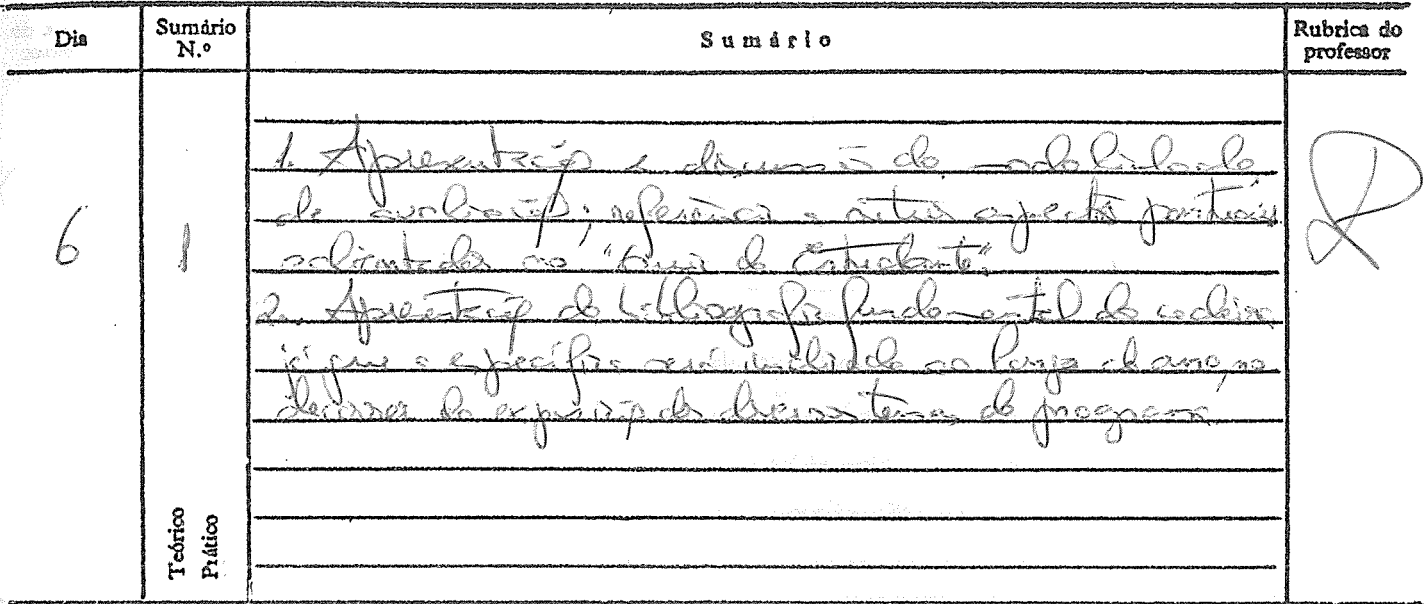 Dia
Sumário N.º
Sumário
Rubrica do professor
6
1
1. Apresentação e discussão da modalidade
de avaliação; referência a outros aspectos
no "Guia do Estudante".
2. Apresentação da bibliografia fundamental da cadeira
já que a específica será indicada ao longo do ano, no
decorrer da exposição dos diversos temas do programa
Teórico
Prático